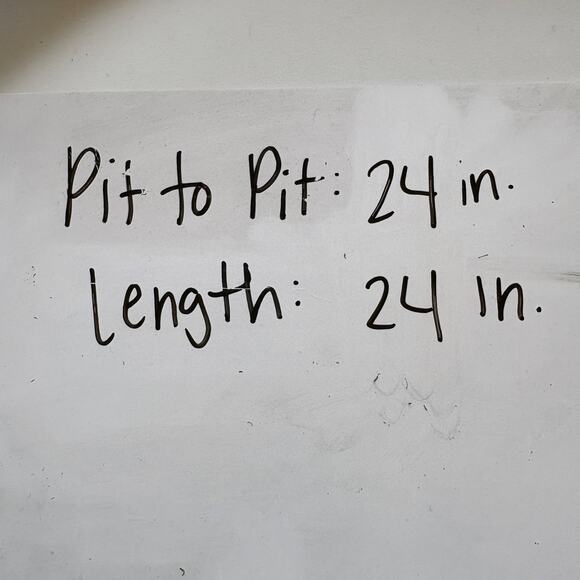 Pit to Pit: 24 in.
Length: 24 in.